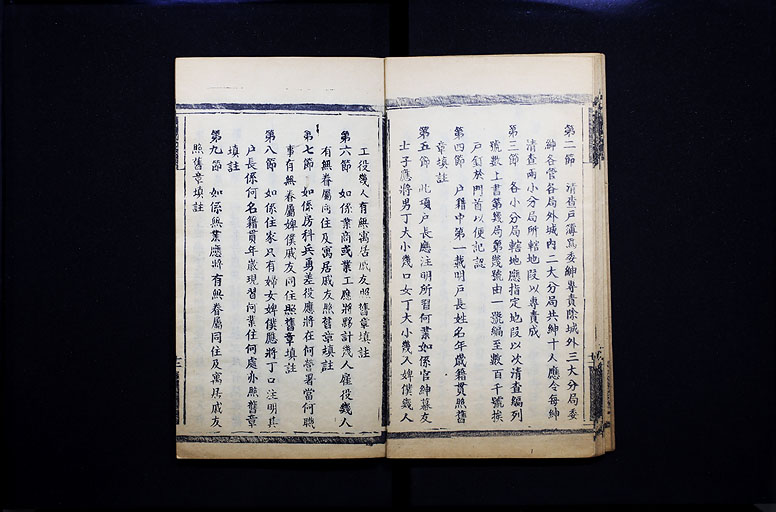 第二節 清查戶簿爲委紳專責除城外三大分局委
紳各管各局外城內二大分局共紳十人應令每紳
清查兩小分局所轄地叚以專責成
第三節 各小分局轄地應指定地叚以次清查編列
號數上書第幾局第幾號由一號編至數百千號挨
戶釘於門首以便記認
第四節 戶籍中第一載明戶長姓名年歲籍貫照舊
章填註
第五節 此項戶長應注明所習何業如係官紳幕友
士子應將男丁大小幾口女丁大小幾人婢僕幾人
工役幾人有無寓居戚友照舊章填註
第六節 如係業商或業工應將夥計幾人雇役幾人
有無眷屬同住及寓居戚友照舊章填註
第七節 如係房科兵勇差役應將在何營署當何職
事有無眷屬婢僕戚友同住照舊章填註
第八節 如係住家只有婦女婢僕應將丁口注明其
戶長係何名籍貫年歲現習何業住何處亦照舊章
填註
第九節 如係無業應將有無眷屬同住及寓居戚友
照舊章填註